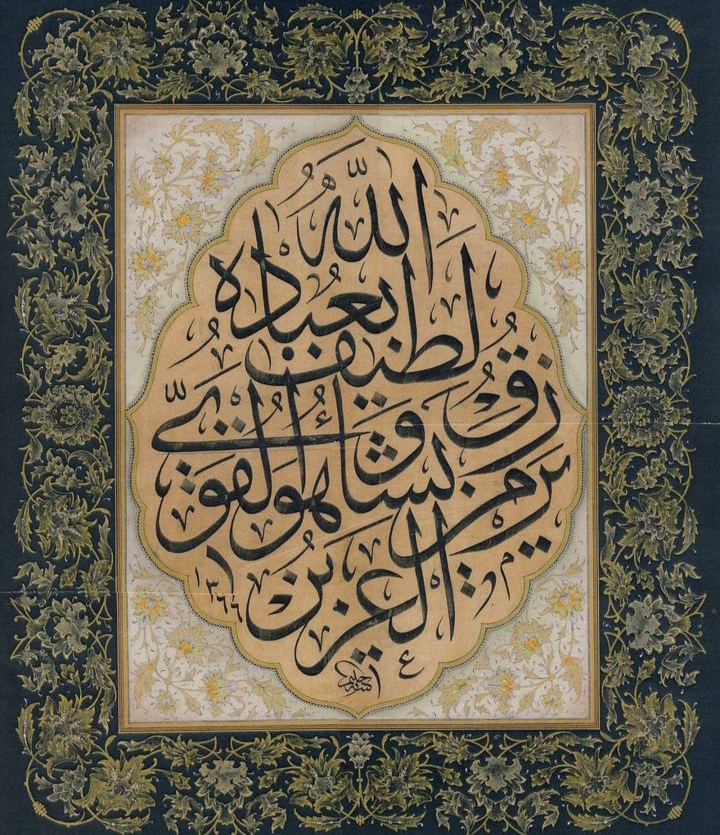 الله
لطيف بعباده
يرزق
من يشاء وهو القوي
العزيز
١٣٦٦